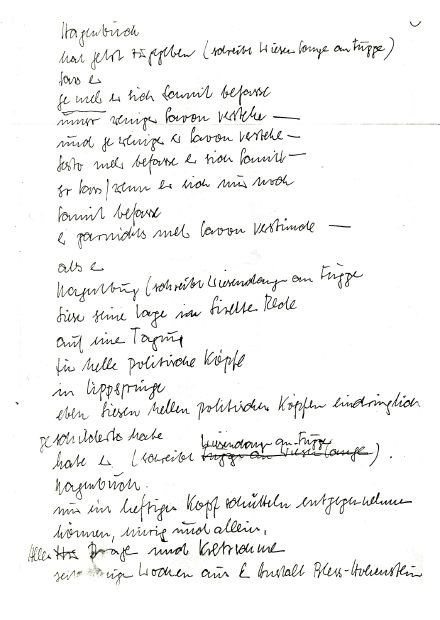 Hagenbuch
hat jetzt zugegeben (schreibt Wiesenlange an Függe)
dass er
je mehr er sich damit befasse
umso weniger davon verstehe —
und je weniger er davon verstehe —
desto mehr befasse er sich damit —
so dass / wenn er sich nur noch
damit befasse
er garnichts mehr davon verstünde —
als er
Hagenbuch (schreibt an Függe
diese seine Lage in Rede
auf eine Tagung
für helle politische Köpfe
in Lippspringe
eben diesen hellen politischen Köpfen eindringlich
geschildert habe
an Függe
habe er (schreibt Függe an Wiesenlange).
Hagenbuch.
nur ein heftiges Kopfschütteln entgegennehmen
können, einzig und allein,
und
seit einigen Wochen aus Anstalt Bless-Hohenstein